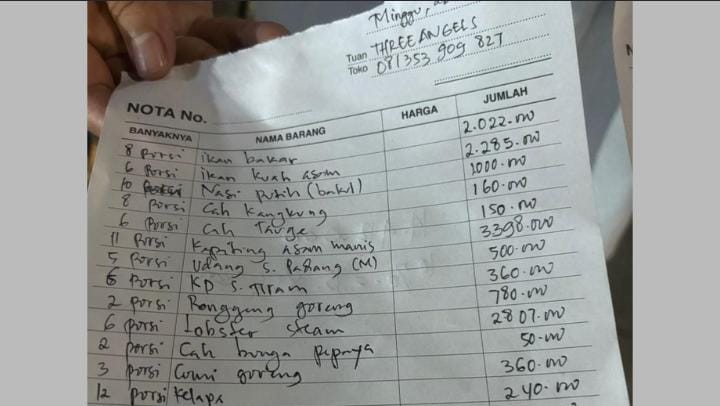 Minggu,
Tuan THREE ANGELS
Toko 081353 909 827
NOTA No.
BANYAKNYA NAMA BARANG HARGA JUMLAH
8 Porsi ikan bakar 2.022.000
6 Porsi ikan kuah asam 2.285.000
10 Nasi putih (bakul) 1000.000
8 Porsi Cah Kangkung 160.000
6 Porsi Cah Tauge 150.000
11 Porsi Kepiting asam manis 3398.000
5 Porsi Udang s. Padang (M) 500.000
6 Porsi KP s. Tiram 360.000
2 Porsi Ronggeng goreng 780.000
6 porsi Lobster steam 2807.000
2 porsi Cah bunga pepaya 50.000
3 porsi Cumi goreng 360.000
12 porsi Kelapa 240.000